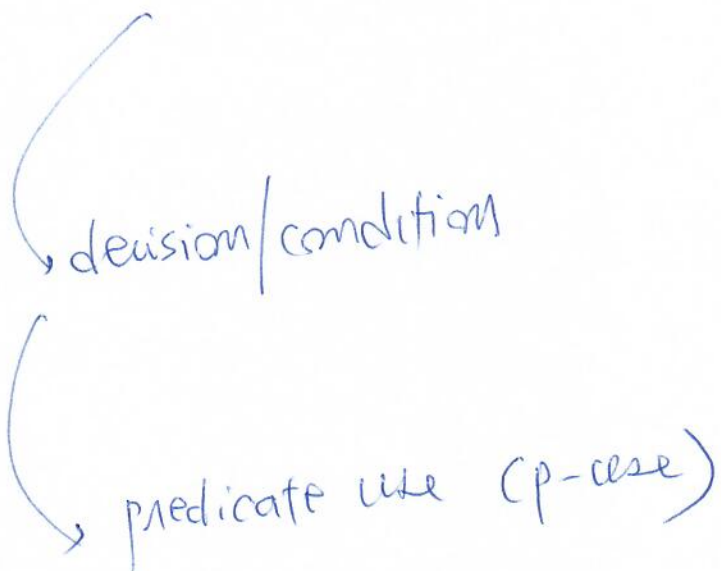 decision/condition
predicate use (p-use)